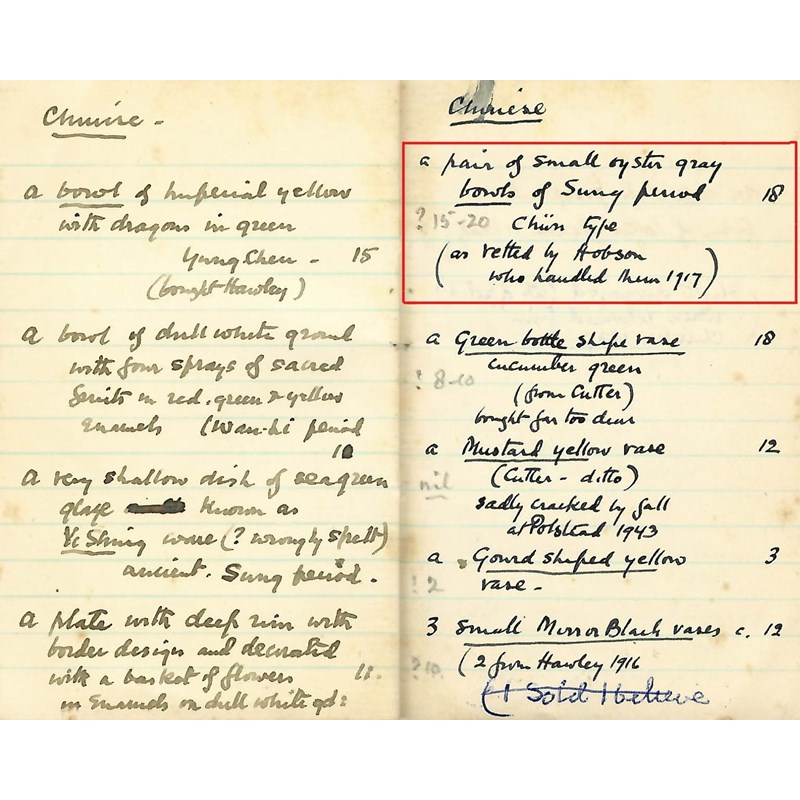 Chinese -
a bowl of Imperial yellow
with dragons in green
Yung Chen - 15
(bought Hawley)
a bowl of dull white ground
with four sprays of sacred
fruits in red, green & yellow
Enamels (Wan-li period
10
a very shallow dish of seagreen
glaze known as
Yi Shing ware (? wrongly spelt)
ancient. Sung period.
a plate with deep rim with
border designs and decorated
with a basket of flowers 11.
in Enamels on dull white gd:
Chinese
a pair of small oyster gray
bowls of Sung period 18
? 15-20 Chün type
(as vetted by Hobson
who handled them 1917)
a Green bottle shape vase 18
cucumber green
? 8-10
(from Cutter)
bought far too dear
a Mustard yellow vase 12
(Cutter - ditto)
nil
sadly cracked by fall
at Polstead 1943
a Gourd shaped yellow 3
? 2 vase -
3 small Mirror Black vases c. 12
? 10. (2 from Hawley 1916
(1 Sold I believe